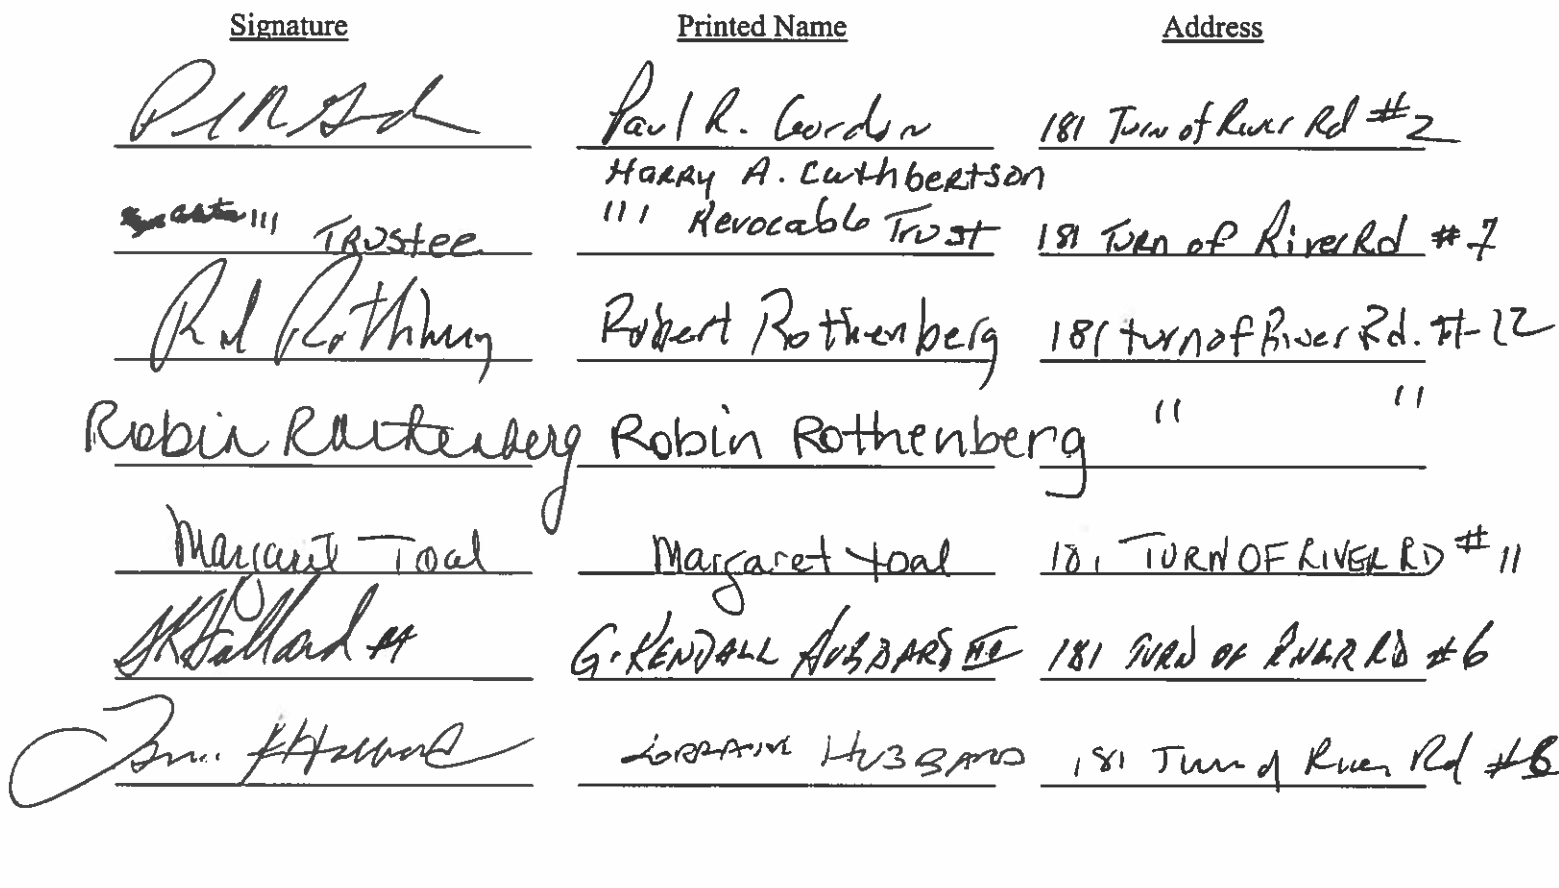 Signature Printed Name Address
Paul R. Gordon 181 Turn of River Rd #2
Harry A. Cuthbertson
III Trustee III Revocable Trust 181 Turn of River Rd #7
Rothenberg Robert Rothenberg 181 turn of River Rd. #12
Robin Rothenberg Robin Rothenberg " "
Margaret Toal Margaret Toal 181 TURN OF RIVER RD #11
GKHubbard III G. KENDALL HUBBARD III 181 TURN OF RIVER RD #6
Hubbard LORRAINE HUBBARD 181 Turn of River Rd #6